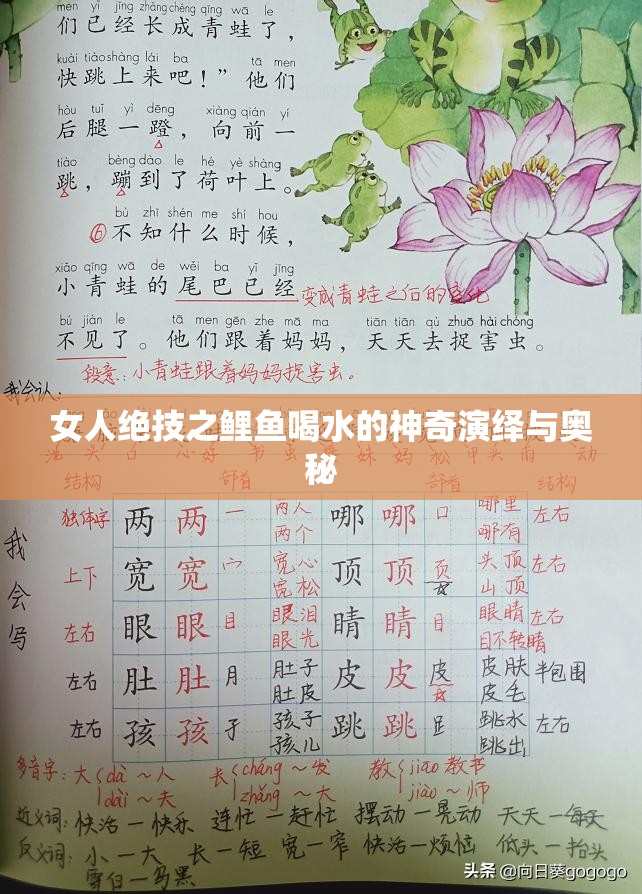 men yǐ jīng zhǎng chéng qīng wā le
们已经长成青蛙了，
kuài tiào shàng lái ba tā men
快跳上来吧！” 他们
hòu tuǐ yì dēng xiàng qián yí
后腿一蹬，向前一
tiào bèng dào le hé yè shàng
跳，蹦到了荷叶上。
bù zhī shén me shí hou
⑥不知什么时候，
xiǎo qīng wā de wěi ba yǐ jīng
小青蛙的尾巴已经 变成青蛙之后的变化
bú jiàn le tā men gēn zhe mā ma tiān tiān qù zhuō hài chóng
不见了。他们跟着妈妈，天天去捉害虫。
段意：小青蛙跟着妈妈捉害虫。
我会认：
女人绝技之鲤鱼喝水的神奇演绎与奥
秘
结构 部首 部首 结构
我会写
独体字 两 两 一 两人 两个 哪 哪 口 哪里 哪有 左右
上下 宽 宽 宀 宽心 宽松 顶 顶 页 头顶 山顶 左右
左右 眼 眼 目 眼泪 眼光 睛 睛 目 眼睛 目不转睛 左右
左右 肚 肚 月 肚子 肚皮 皮 皮 皮 皮肤 皮毛 半包围
左右 孩 孩 子 孩子 孩儿 跳 跳 跳水 跳出 左右
多音字：大 dà ~人 dài ~夫 长 cháng ~发 zhǎng ~大 教 jiāo 教书 jiào ~师
近义词：快活—快乐 连忙—赶忙 摆动—晃动 天天—每天
反义词：小—大 长—短 宽—窄 快活—烦恼 低头—抬头
雪白—乌黑
头条 @向日葵gogogo